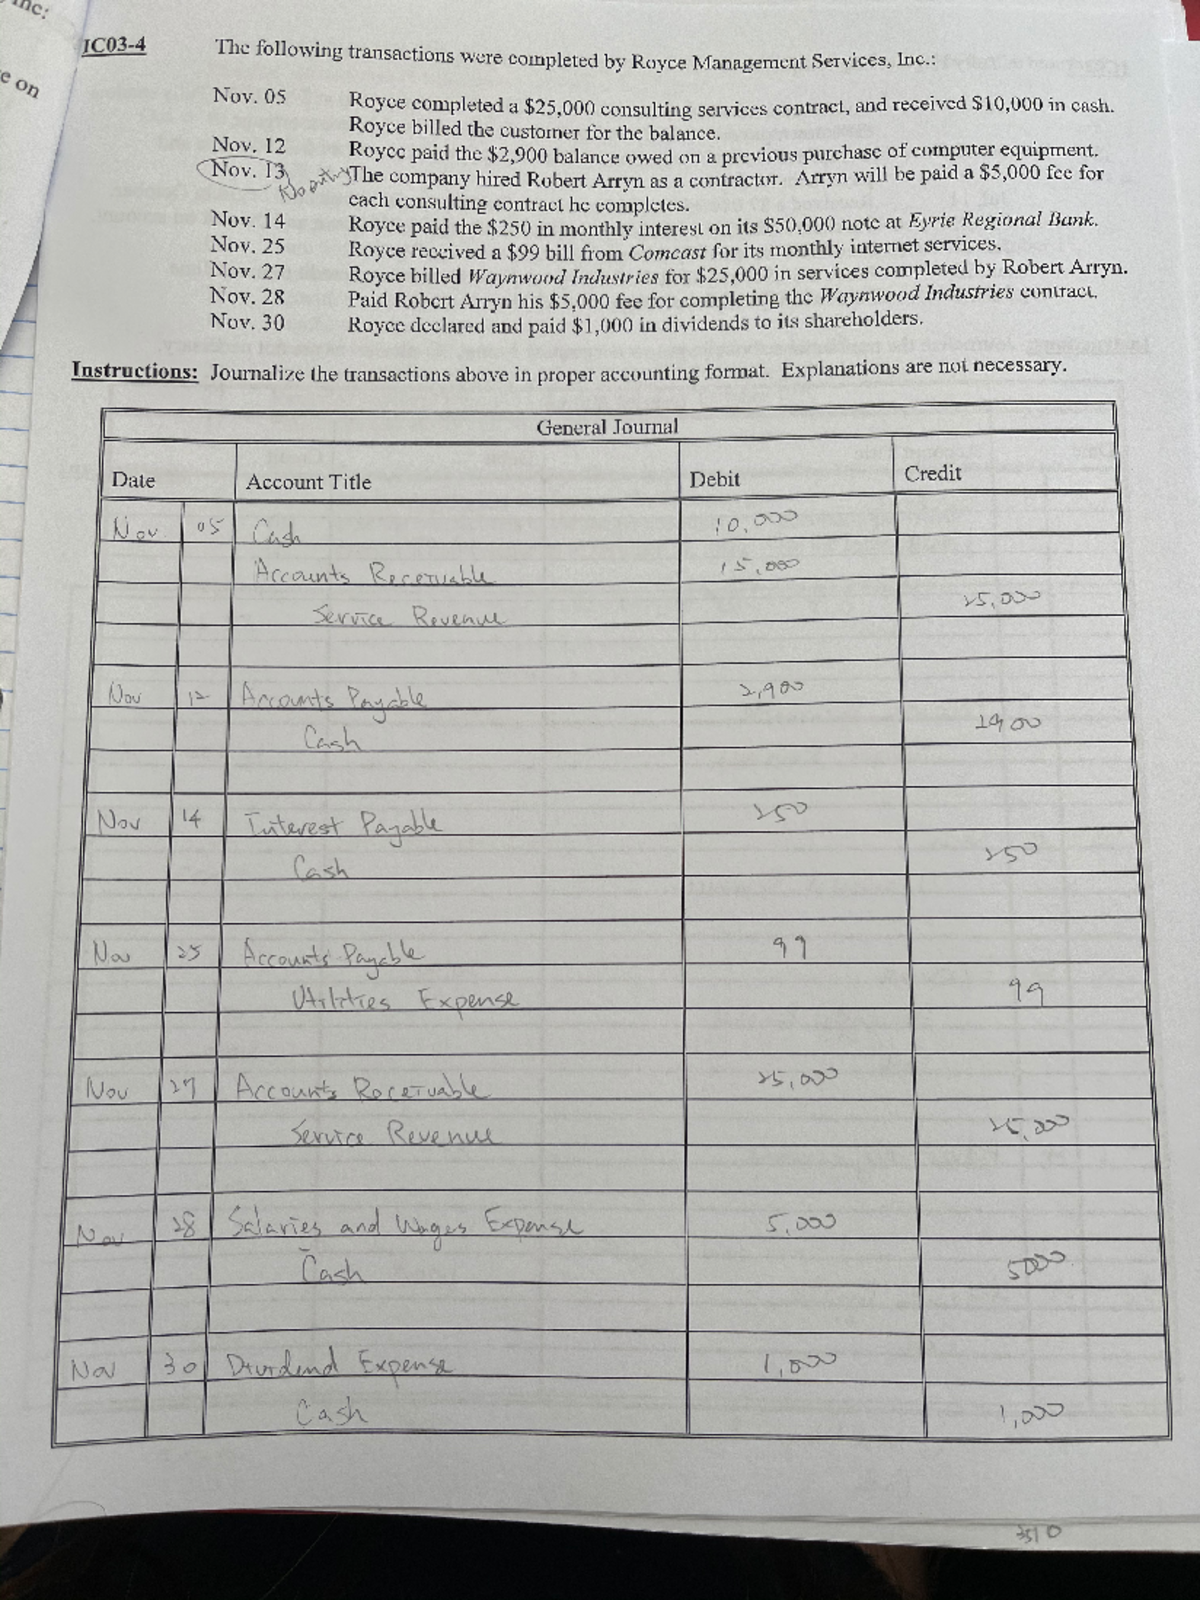 Inc:
e on
IC03-4 The following transactions were completed by Royce Management Services, Inc.:
Nov. 05 Royce completed a $25,000 consulting services contract, and received $10,000 in cash.
Royce billed the customer for the balance.
Nov. 12 Royce paid the $2,900 balance owed on a previous purchase of computer equipment.
Nov. 13 No entry The company hired Robert Arryn as a contractor. Arryn will be paid a $5,000 fee for
each consulting contract he completes.
Nov. 14 Royce paid the $250 in monthly interest on its $50,000 note at Eyrie Regional Bank.
Nov. 25 Royce received a $99 bill from Comcast for its monthly internet services.
Nov. 27 Royce billed Waynwood Industries for $25,000 in services completed by Robert Arryn.
Nov. 28 Paid Robert Arryn his $5,000 fee for completing the Waynwood Industries contract.
Nov. 30 Royce declared and paid $1,000 in dividends to its shareholders.
Instructions: Journalize the transactions above in proper accounting format. Explanations are not necessary.
General Journal
Date Account Title Debit Credit
Nov 05 Cash 10,000
Accounts Receivable 15,000
Service Revenue 25,000
Nov 12 Accounts Payable 2,900
Cash 2900
Nov 14 Interest Payable 250
Cash 250
Nov 25 Accounts Payable 99
Utilities Expense 99
Nov 27 Accounts Receivable 25,000
Service Revenue 25,000
Nov 28 Salaries and Wages Expense 5,000
Cash 5000
Nov 30 Dividend Expense 1,000
Cash 1,000